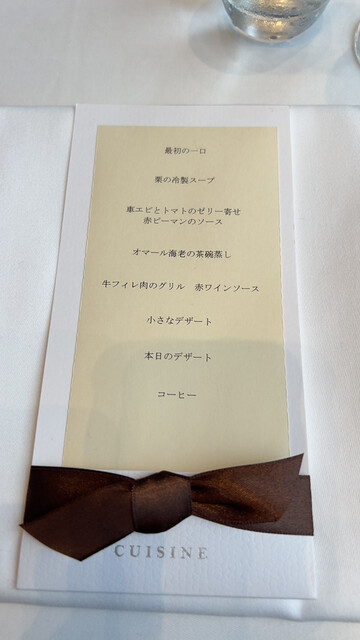 最初の一口
栗の冷製スープ
車エビとトマトのゼリー寄せ
赤ピーマンのソース
オマール海老の茶碗蒸し
牛フィレ肉のグリル　赤ワインソース
小さなデザート
本日のデザート
コーヒー
CUISINE